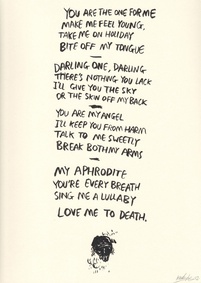 YOU ARE THE ONE FOR ME
MAKE ME FEEL YOUNG,
TAKE ME ON HOLIDAY
BITE OFF MY TONGUE
DARLING ONE, DARLING
THERE'S NOTHING YOU LACK
I'LL GIVE YOU THE SKY
OR THE SKIN OFF MY BACK
YOU ARE MY ANGEL
I'LL KEEP YOU FROM HARM
TALK TO ME SWEETLY
BREAK BOTH MY ARMS
MY APHRODITE
YOU'RE EVERY BREATH
SING ME A LULLABY
LOVE ME TO DEATH.